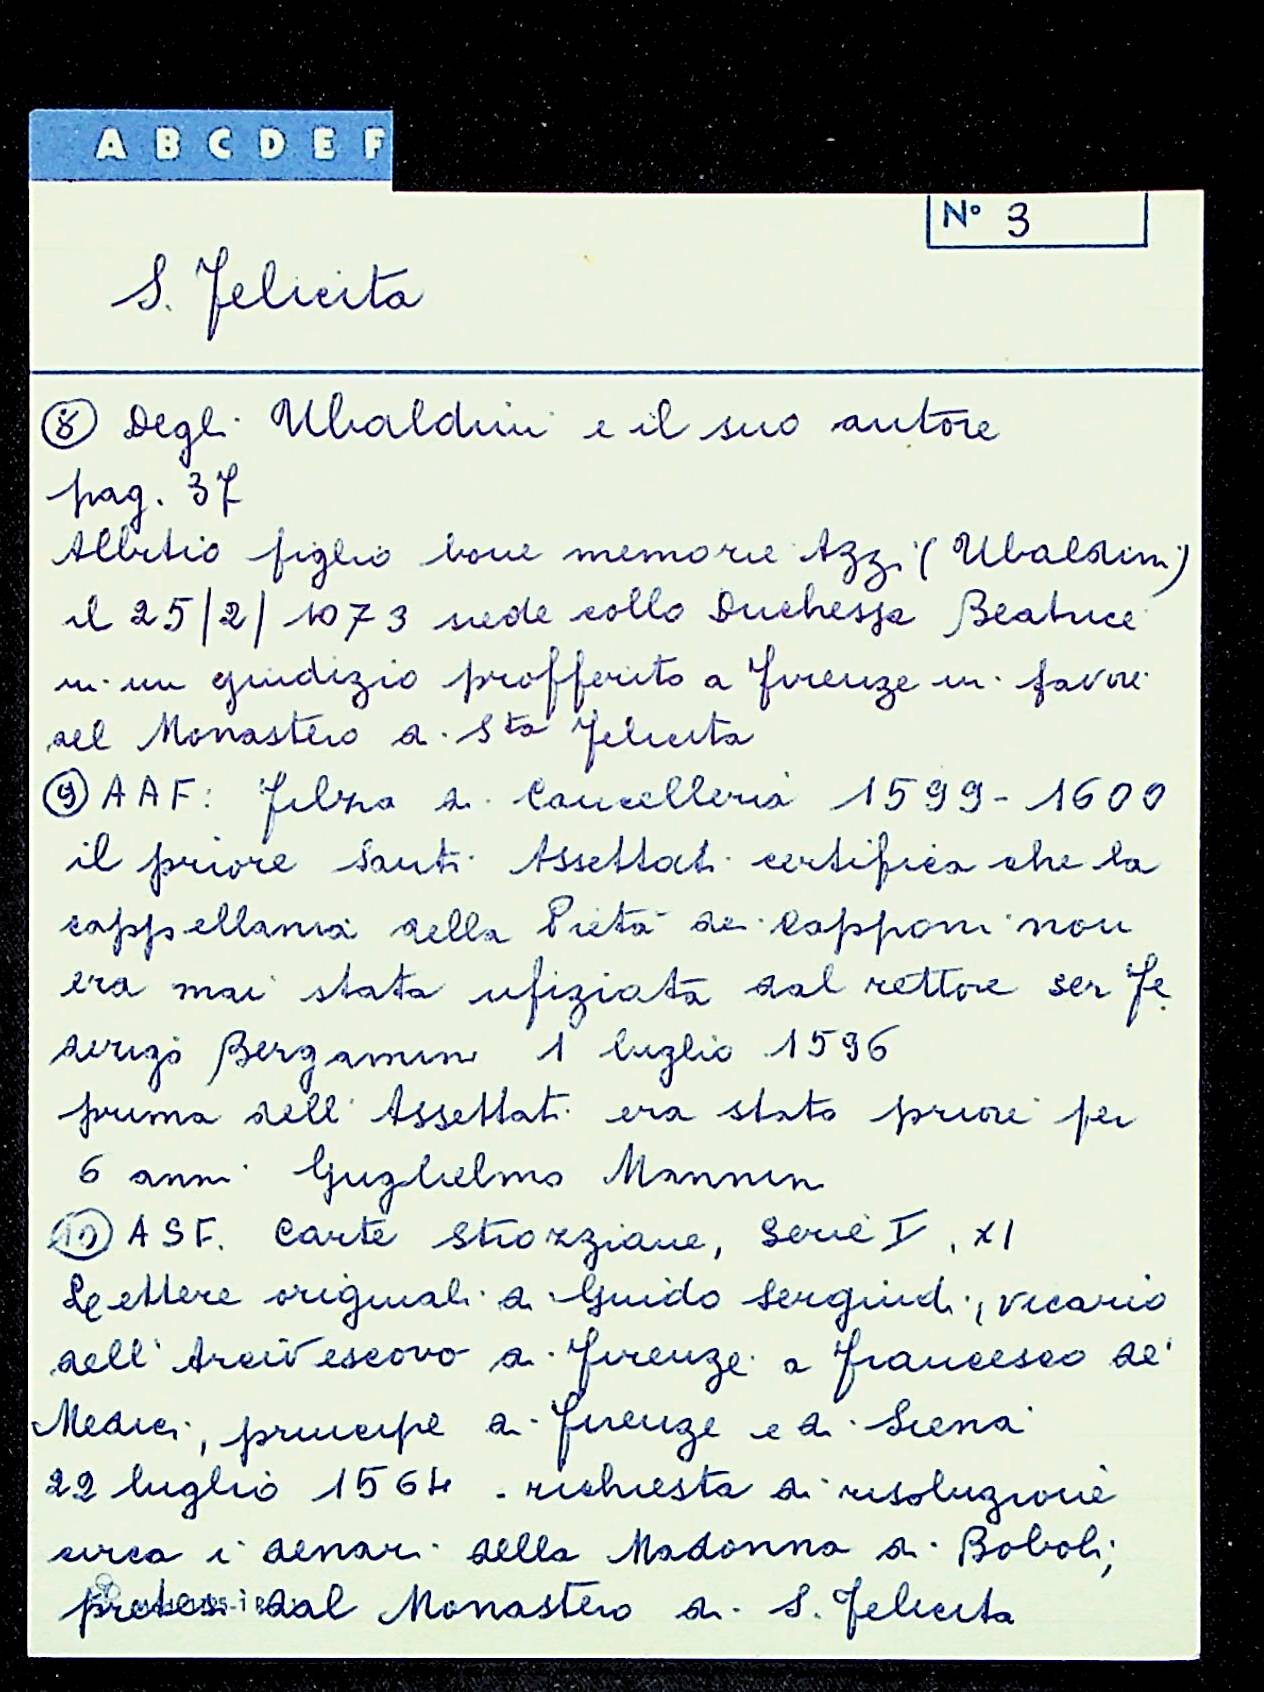 A B C D E F
N° 3
S. Felicita
⑧ Degli Ubaldini e il suo autore
pag. 37
figlio bone memorie Azzi (Ubaldini)
il 25/2/1073 siede colla Duchessa Beatrice
in un giudizio profferito a Firenze in favore
del Monastero di Sta Felicita
⑨ AAF: Filza di Cancelleria 1599-1600
il priore Santi Assettati certifica che la
cappellania della Pietà dei Capponi non
era mai stata ufiziata dal rettore ser Fe
derigo Bergamini 1 luglio 1596
prima dell'Assettati era stato priore per
6 anni Guglielmo Mannini
⑩ ASF. Carte Strozziane, Serie I, XI
Lettere originali di Guido Serguidi, vicario
dell'Arcivescovo di Firenze a Francesco de'
Medici, principe di Firenze e di Siena
22 luglio 1564 - richiesta di risoluzione
circa i denari della Madonna di Boboli,
pretesi dal Monastero di S. Felicita